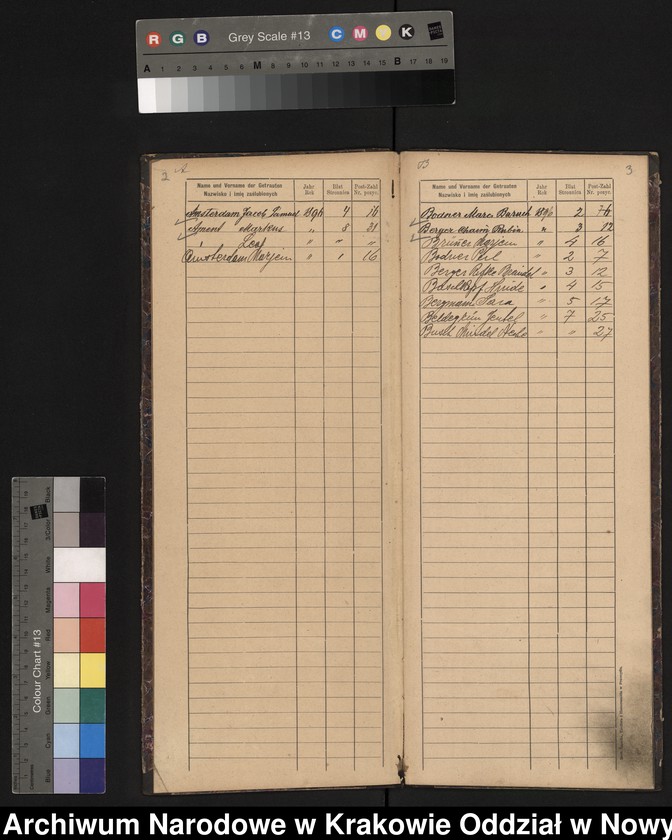 R G B Grey Scale #13 C M Y K
A 1 2 3 4 5 6 M 8 9 10 11 12 13 14 15 B 17 18 19
2 A
Name und Vorname der Getrauten
Nazwisko i imię zaślubionych
Jahr
Rok
Blat
Stronnica
Post-Zahl
Nr. pozyc.
Amsterdam Jacob Samuel 1896 4 16
Ament 8 31
" " "
Amsterdam Marjem " 1 16
B 3
Name und Vorname der Getrauten
Nazwisko i imię zaślubionych
Jahr
Rok
Blat
Stronnica
Post-Zahl
Nr. pozyc.
Bodner Mares Baruch 1896 2
Berger Chaim Rubin " 3 12
Brüner Marjem " 4 16
Bodner Perl " 2 7
Berger Rifke Braindel " 3 12
Hinde " 4 15
Bergmann Sara " 5 17
Jentel " 7 25
" " 27
Colour Chart #13
Blue Cyan Green Yellow Red Magenta White 3/Color Black
Archiwum Narodowe w Krakowie Oddział w Nowy